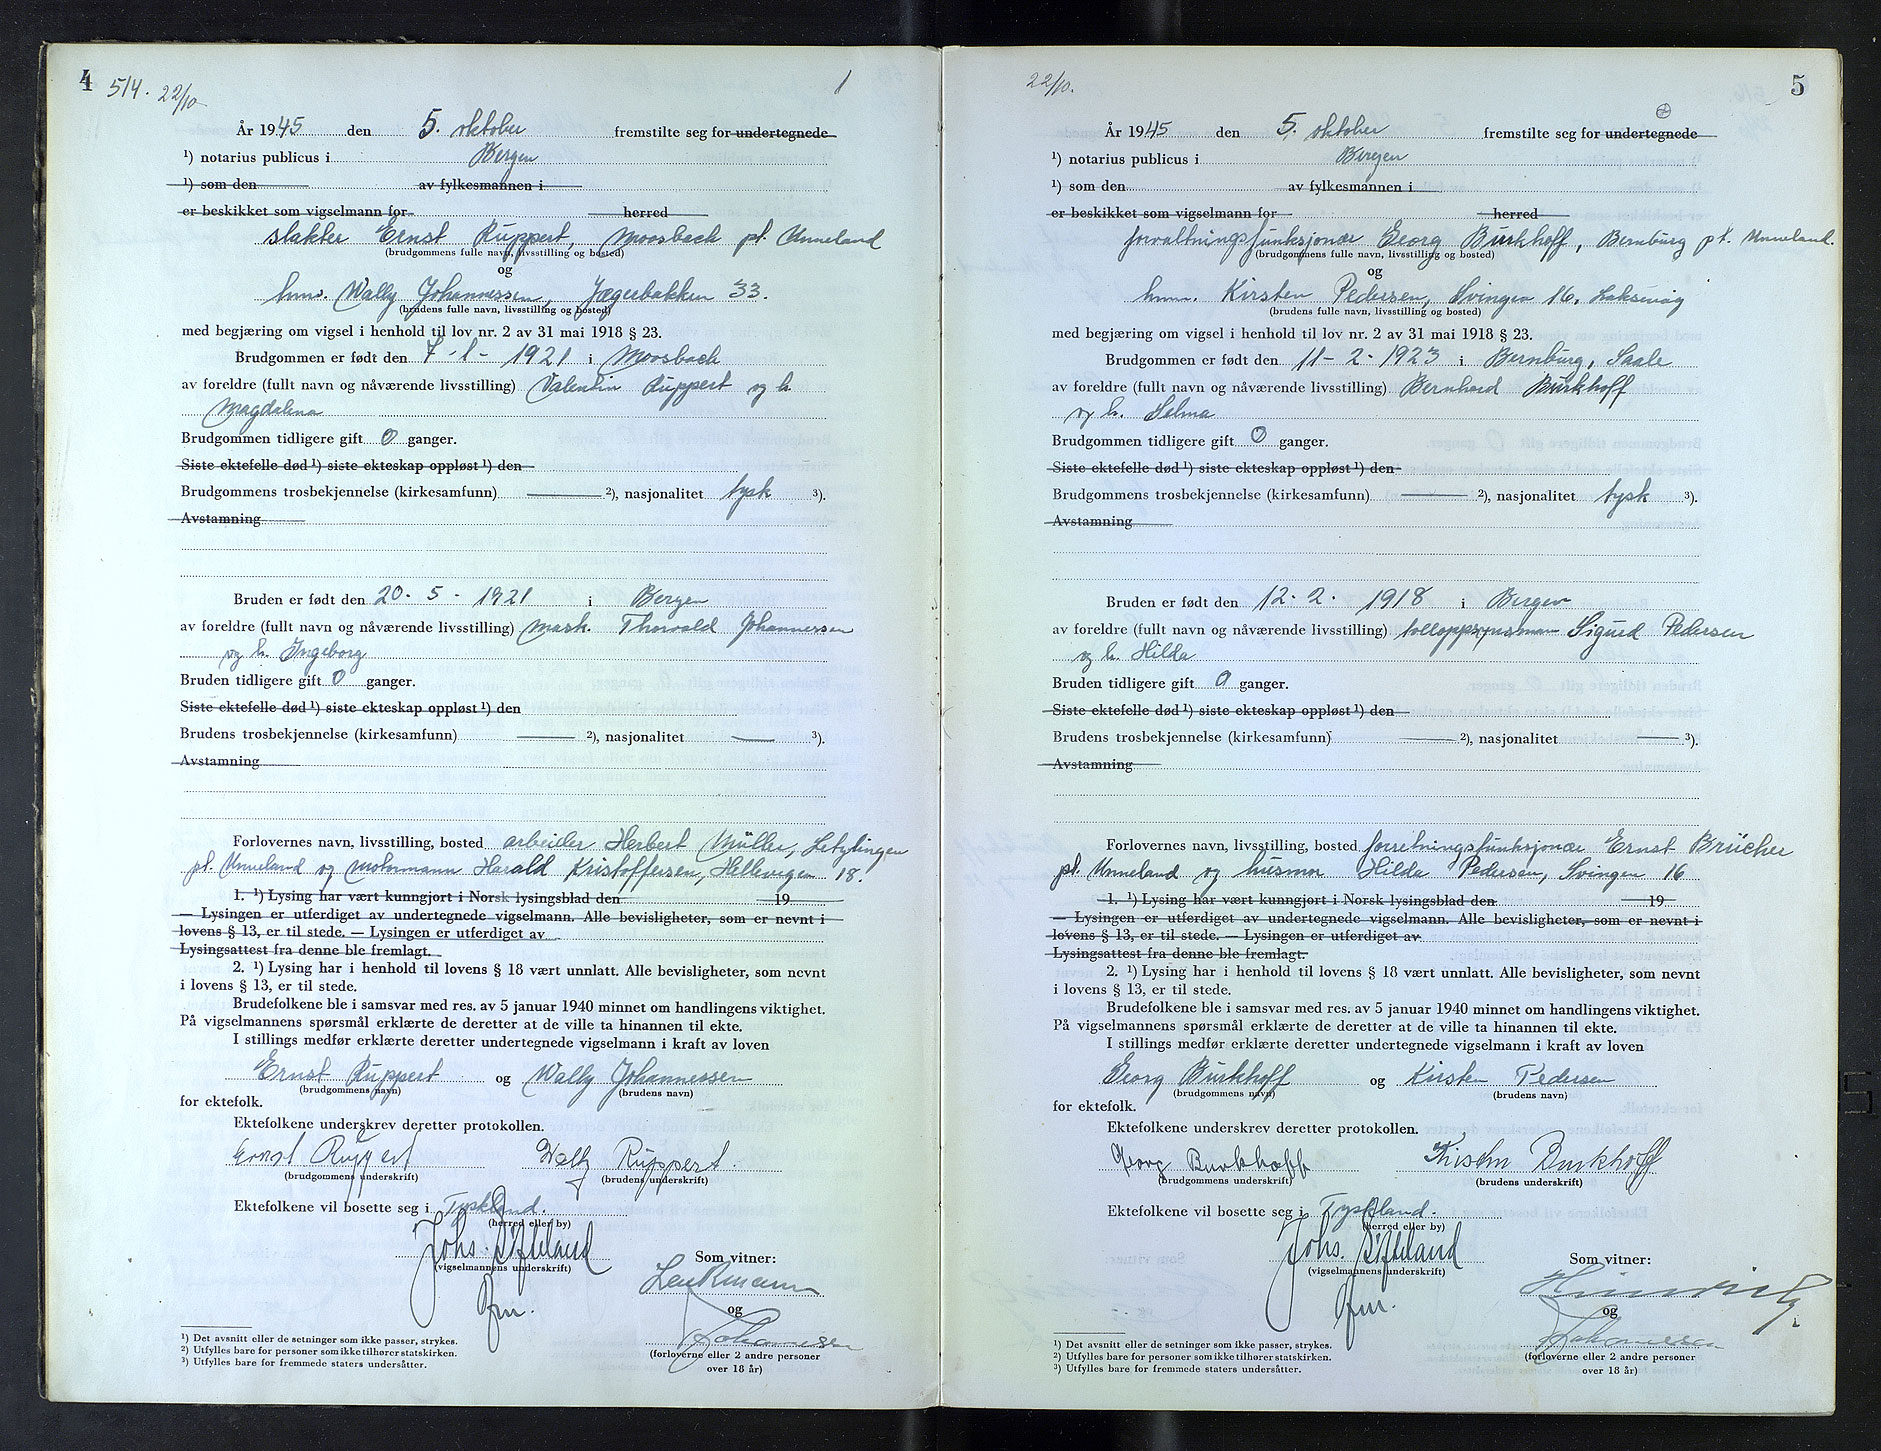 4 514. 22/10 1
År 1945 den 5. oktober fremstilte seg for undertegnede
¹) notarius publicus i Bergen
¹) som den av fylkesmannen i
er beskikket som vigselmann for herred
slakter Ernst Ruppert, Moosbach pt. Unneland
(brudgommens fulle navn, livsstilling og bosted)
og
hmv. Wally Johannessen, Jægerbakken 33.
(brudens fulle navn, livsstilling og bosted)
med begjæring om vigsel i henhold til lov nr. 2 av 31 mai 1918 § 23.
Brudgommen er født den 7-1- 1921 i Moosbach
av foreldre (fullt navn og nåværende livsstilling) Valentin Ruppert og h.
Magdalena
Brudgommen tidligere gift 0 ganger.
Siste ektefelle død ¹) siste ekteskap oppløst ¹) den
Brudgommens trosbekjennelse (kirkesamfunn) ²), nasjonalitet tysk ³).
Avstamning
Bruden er født den 20. 5. 1921 i Bergen
av foreldre (fullt navn og nåværende livsstilling) mask. Thorvald Johannessen
og h. Ingeborg
Bruden tidligere gift 0 ganger.
Siste ektefelle død ¹) siste ekteskap oppløst ¹) den
Brudens trosbekjennelse (kirkesamfunn) ²), nasjonalitet ³).
Avstamning
Forlovernes navn, livsstilling, bosted arbeider Herbert Müller, Letzlingen
pt. Unneland og motormann Harald Kristoffersen, Hellevegen 18.
1. ¹) Lysing har vært kunngjort i Norsk lysingsblad den 19
— Lysingen er utferdiget av undertegnede vigselmann. Alle bevisligheter, som er nevnt i
lovens § 13, er til stede. — Lysingen er utferdiget av
Lysingsattest fra denne ble fremlagt.
2. ¹) Lysing har i henhold til lovens § 18 vært unnlatt. Alle bevisligheter, som nevnt
i lovens § 13, er til stede.
Brudefolkene ble i samsvar med res. av 5 januar 1940 minnet om handlingens viktighet.
På vigselmannens spørsmål erklærte de deretter at de ville ta hinannen til ekte.
I stillings medfør erklærte deretter undertegnede vigselmann i kraft av loven
Ernst Ruppert og Wally Johannessen
(brudgommens navn) (brudens navn)
for ektefolk.
Ektefolkene underskrev deretter protokollen.
Ernst Ruppert Wally Ruppert.
(brudgommens underskrift) (brudens underskrift)
Ektefolkene vil bosette seg i Tyskland.
(herred eller by)
Johs.
(vigselmannens underskrift) Som vitner:
og
Johannessen
(forloverne eller 2 andre personer
over 18 år)
¹) Det avsnitt eller de setninger som ikke passer, strykes.
²) Utfylles bare for personer som ikke tilhører statskirken.
³) Utfylles bare for fremmede staters undersåtter.
22/10. 5
År 1945 den 5. oktober fremstilte seg for undertegnede
¹) notarius publicus i Bergen
¹) som den av fylkesmannen i
er beskikket som vigselmann for herred
forvaltningsfunksjonær Georg Burkhoff, Bernburg pt. Unneland.
(brudgommens fulle navn, livsstilling og bosted)
og
hmv. Kirsten Pedersen, Svingen 16, Laksevåg
(brudens fulle navn, livsstilling og bosted)
med begjæring om vigsel i henhold til lov nr. 2 av 31 mai 1918 § 23.
Brudgommen er født den 11-2-1923 i Bernburg, Saale
av foreldre (fullt navn og nåværende livsstilling) Bernhard Burkhoff
og h. Selma
Brudgommen tidligere gift 0 ganger.
Siste ektefelle død ¹) siste ekteskap oppløst ¹) den
Brudgommens trosbekjennelse (kirkesamfunn) ²), nasjonalitet tysk ³).
Avstamning
Bruden er født den 12. 2. 1918 i Bergen
av foreldre (fullt navn og nåværende livsstilling) tolloppsynsmann Sigurd Pedersen
og h. Hilda
Bruden tidligere gift 0 ganger.
Siste ektefelle død ¹) siste ekteskap oppløst ¹) den
Brudens trosbekjennelse (kirkesamfunn) ²), nasjonalitet ³).
Avstamning
Forlovernes navn, livsstilling, bosted forretningsfunksjonær Ernst Brücher
pt. Unneland og husmor Hilda Pedersen, Svingen 16
1. ¹) Lysing har vært kunngjort i Norsk lysingsblad den 19
— Lysingen er utferdiget av undertegnede vigselmann. Alle bevisligheter, som er nevnt i
lovens § 13, er til stede. — Lysingen er utferdiget av
Lysingsattest fra denne ble fremlagt.
2. ¹) Lysing har i henhold til lovens § 18 vært unnlatt. Alle bevisligheter, som nevnt
i lovens § 13, er til stede.
Brudefolkene ble i samsvar med res. av 5 januar 1940 minnet om handlingens viktighet.
På vigselmannens spørsmål erklærte de deretter at de ville ta hinannen til ekte.
I stillings medfør erklærte deretter undertegnede vigselmann i kraft av loven
Georg Burkhoff og Kirsten Pedersen
(brudgommens navn) (brudens navn)
for ektefolk.
Ektefolkene underskrev deretter protokollen.
Georg Burkhoff Kirsten Burkhoff
(brudgommens underskrift) (brudens underskrift)
Ektefolkene vil bosette seg i Tyskland.
(herred eller by)
Johs.
(vigselmannens underskrift) Som vitner:
og
Johannessen
(forloverne eller 2 andre personer
over 18 år)
¹) Det avsnitt eller de setninger som ikke passer, strykes.
²) Utfylles bare for personer som ikke tilhører statskirken.
³) Utfylles bare for fremmede staters undersåtter.